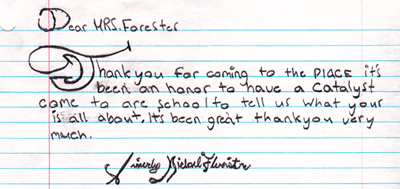 Dear MRS. Forester
Thank you for coming to the PlACE it's
been an honor to have a Catalyst
come to are school to tell us what your
is all about. It's been great thankyou very
much.
Sincerly